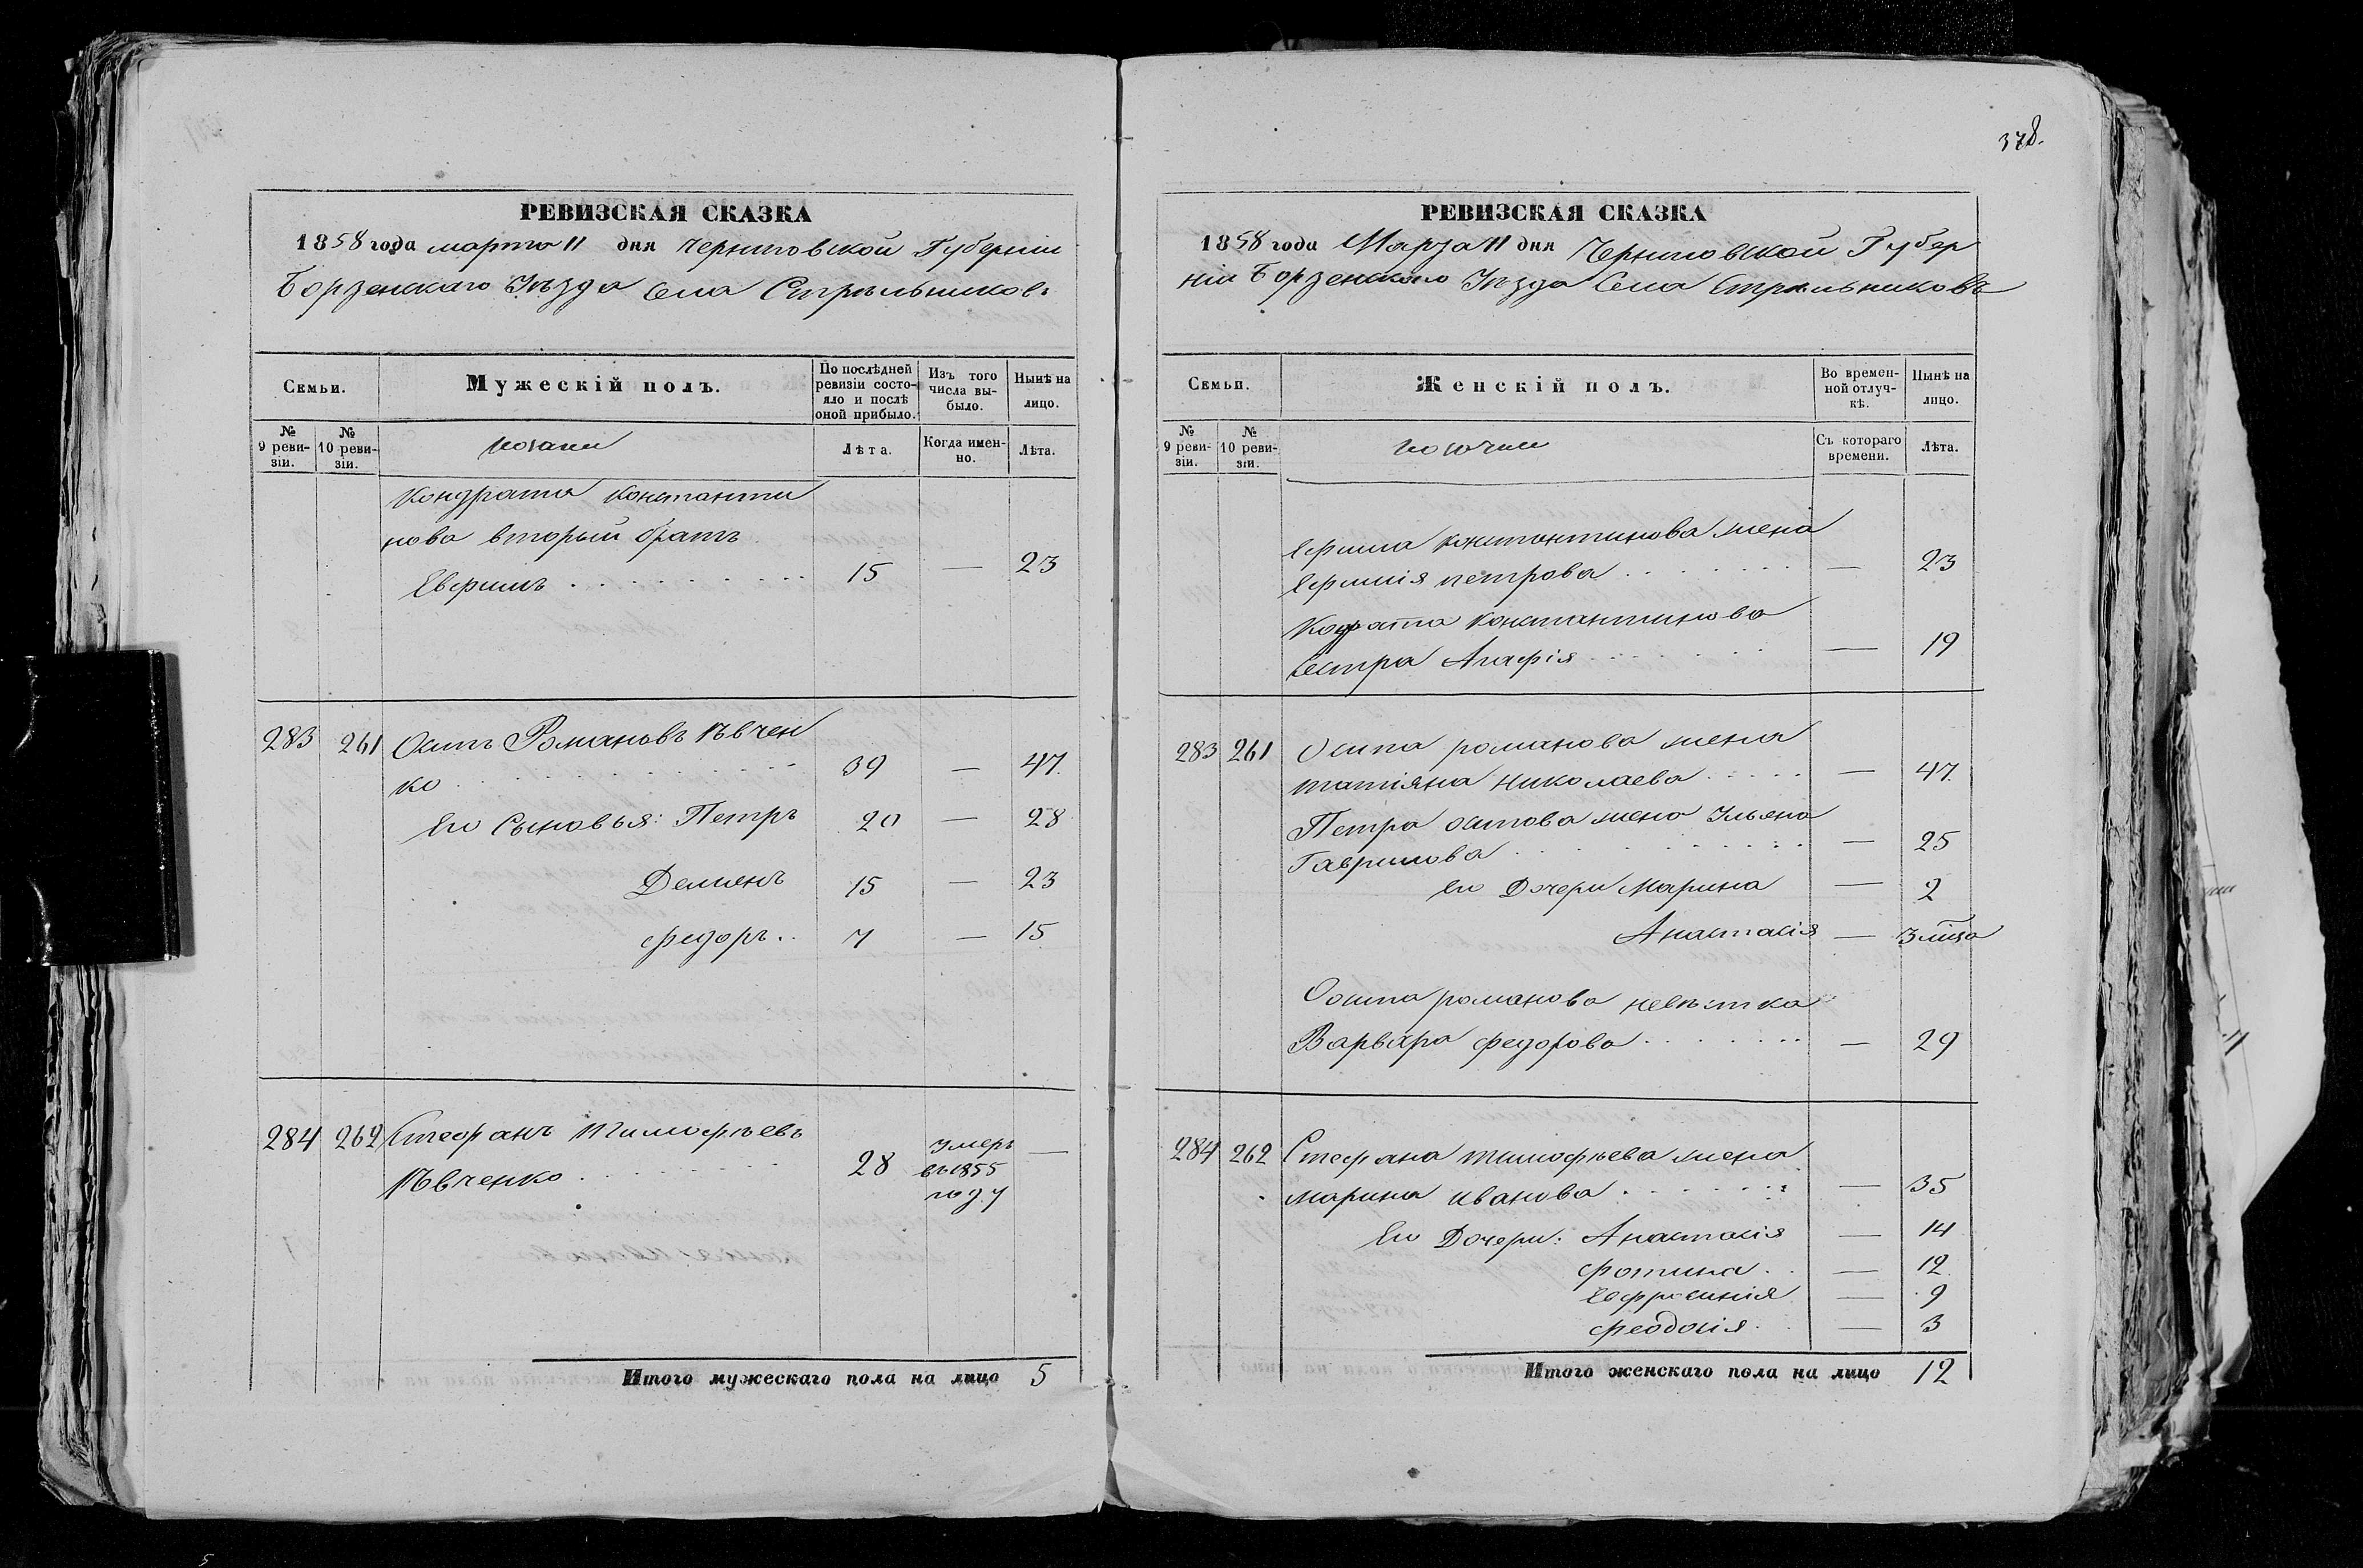 РЕВИЗСКАЯ СКАЗКА
1858 года марта 11 дня Черниговской Губерніи
Борзенскаго Уѣзда Села Стрѣльниковъ
Семьи.
Мужескій полъ.
По послѣдней ревизіи состояло и послѣ оной прибыло.
Изъ того числа выбыло.
Нынѣ на лицо.
№ 9 ревизіи.
№ 10 ревизіи.
козаки
Лѣта.
Когда именно.
Лѣта.
Кондрата Константи
нова вторый братъ
Евфимъ 15 — 23
283 261 Осипъ Романовъ Ивчен
ко 39 — 47.
Его Сыновья: Петръ 20 — 28
Деменъ 15 — 23
Федоръ 7 — 15
284 262 Стефанъ Тимофѣевъ
Ивченко 28 умеръ въ 1855 году —
Итого мужескаго пола на лицо 5
378.
РЕВИЗСКАЯ СКАЗКА
1858 года Марта 11 дня Черниговской Губер
ніи Борзенскаго Уѣзда Села Стрѣльниковъ
Семьи.
Женскій полъ.
Во временной отлучкѣ.
Нынѣ на лицо.
№ 9 ревизіи.
№ 10 ревизіи.
Съ котораго времени.
Лѣта.
Константинова жена
петрова — 23
Константинова
Сестра Агафія — 19
283 261 Осипа романова жена
татіяна николаева — 47.
Петра осипова жена Ульяна
Гаврилова — 25
его Дочери Марина — 2
Анастасія — 3 мѣца
Осипа романова невѣстка
Варвара федорова — 29
284 262 Стефана тимофѣева жена
марина иванова — 35
Его Дочери: Анастасія — 14
фотина — 12
Ефросинія — 9
феодосія — 3
Итого женскаго пола на лицо 12